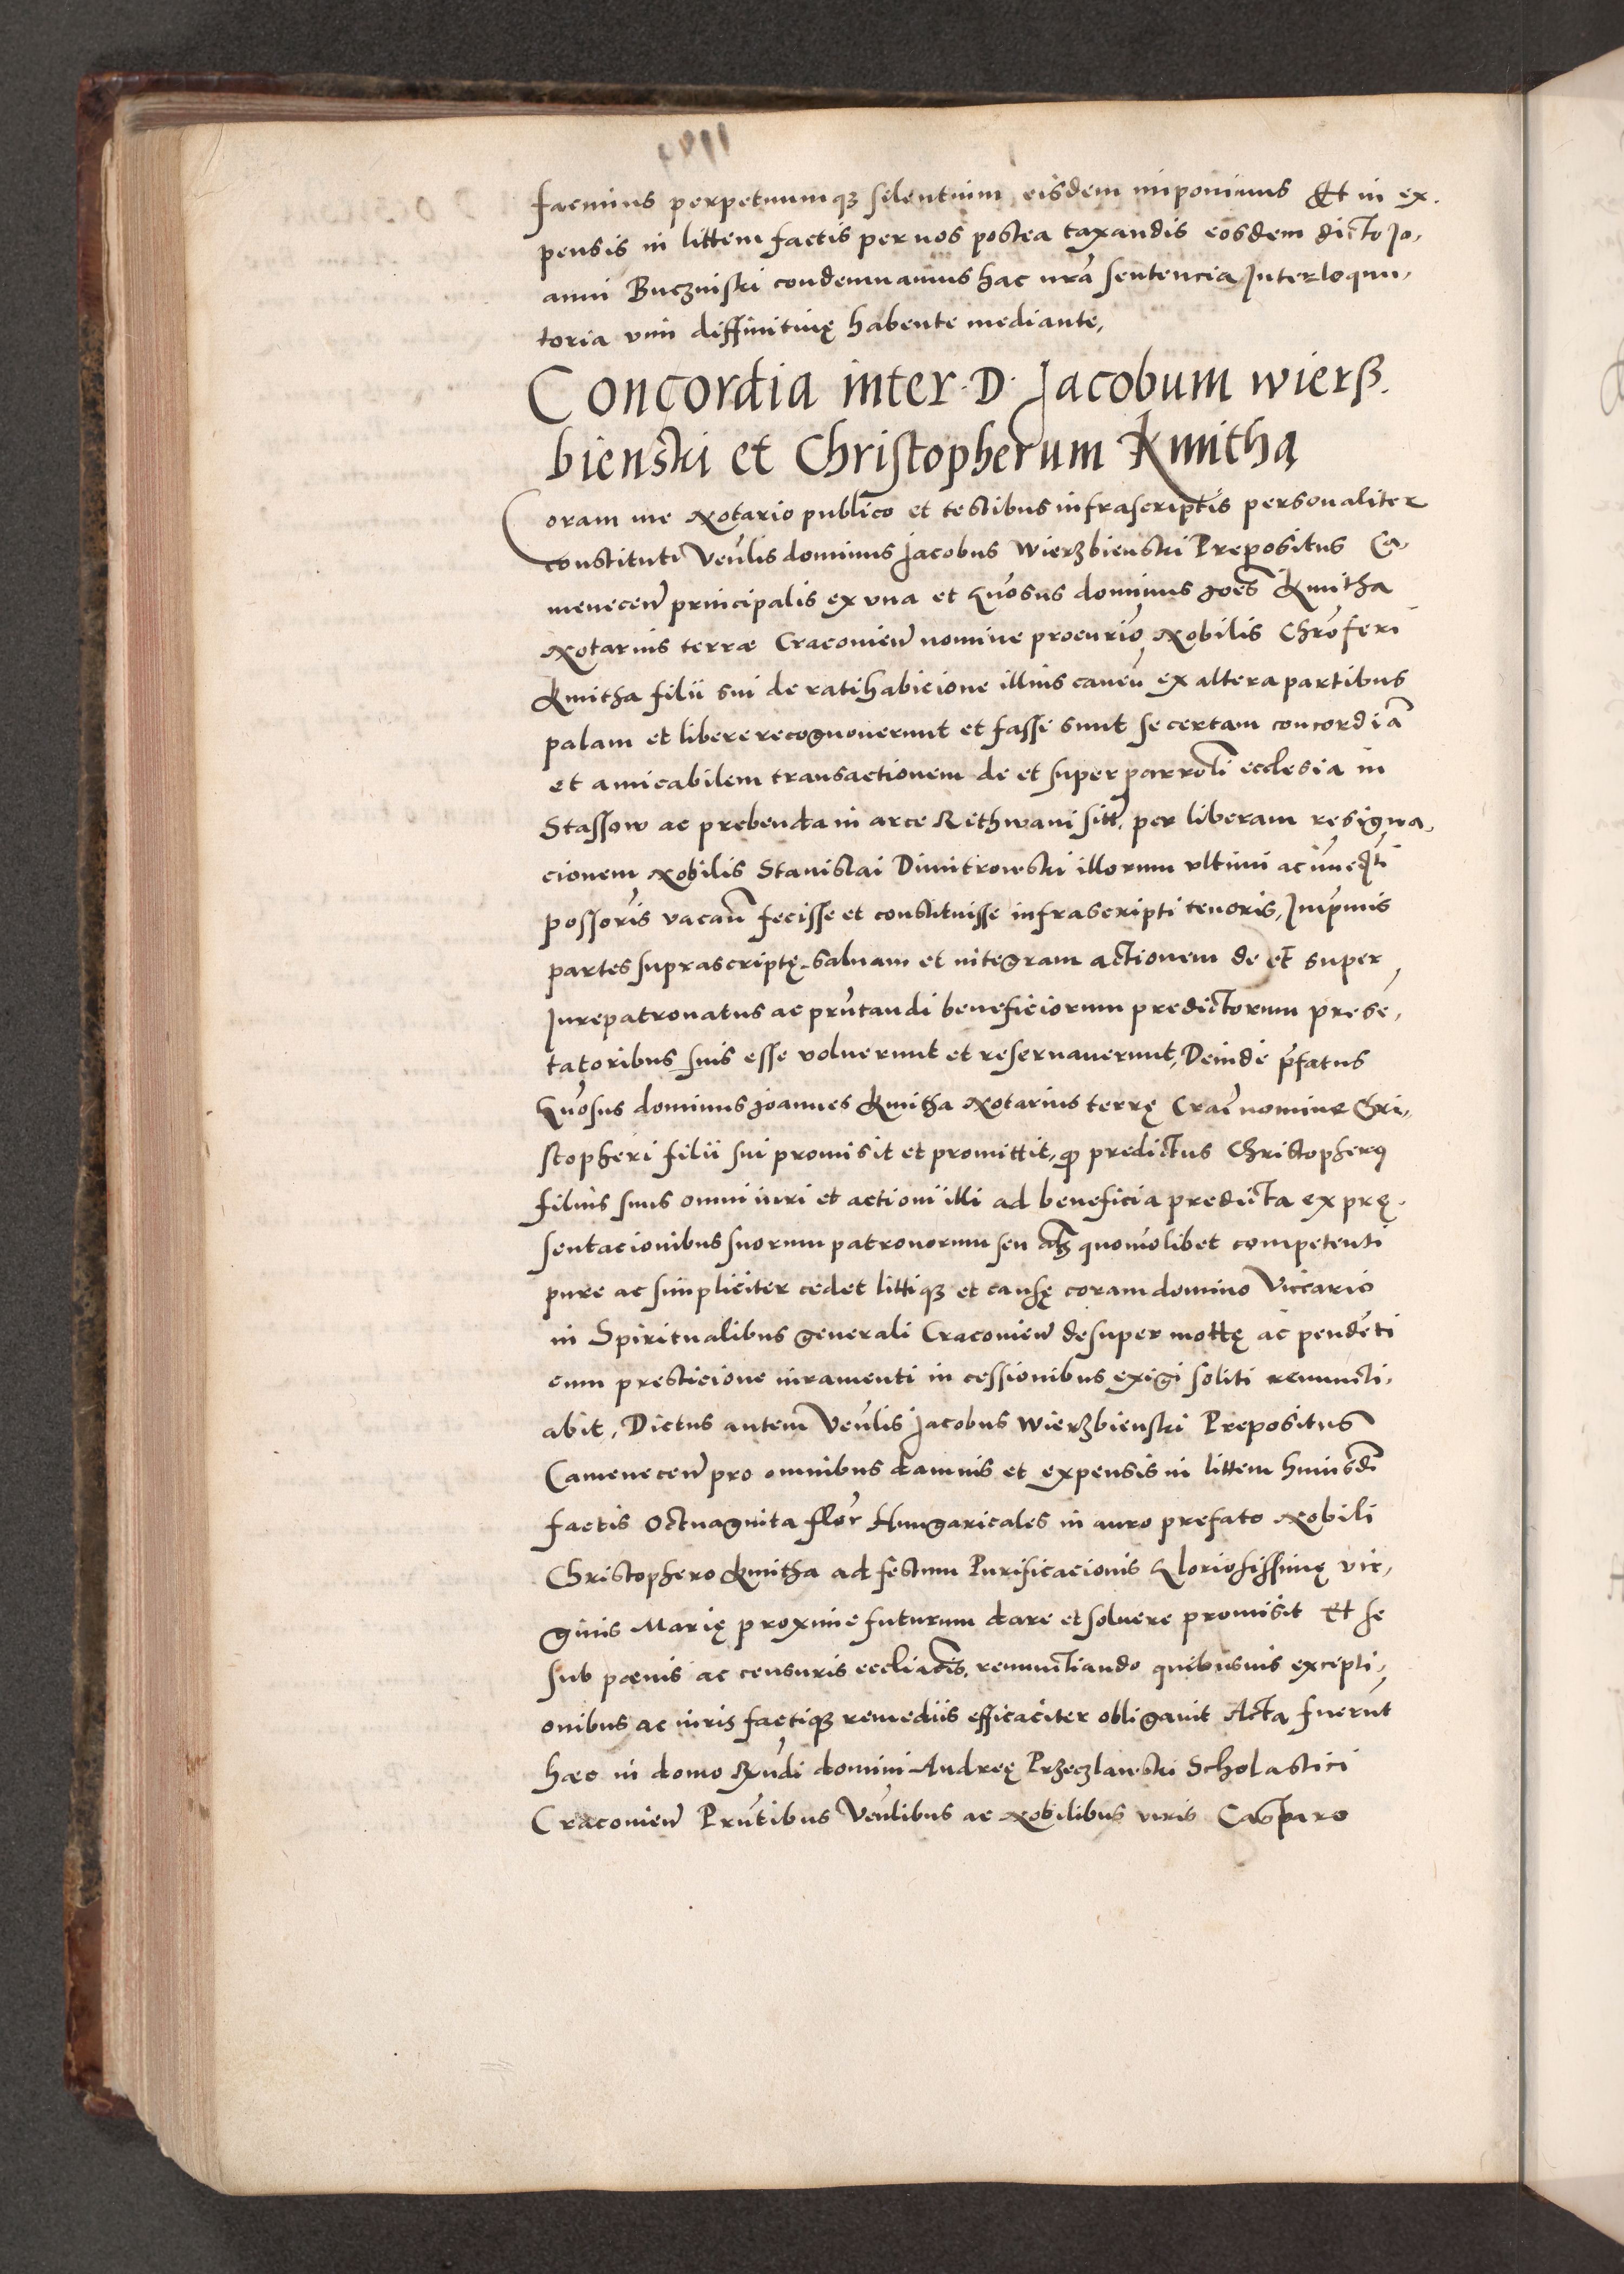 facimus perpetuumqȝ silentium eisdem imponimus Et in ex,
pensis in littem factis per nos postea taxandis eosdem dicto Jo,
anni Buczinski condemnamus hac nrã sentencia Interloqu,
toria vim diffinitiuę habente mediante,
Concordia inter D. Jacobum wierß,
bienski et Christopherum Kmitha
Coram me Notario publico et testibus infrascriptis personaliter
constituti Veñlis dominus Jacobus Wierzbienski Prepositus Ca,
meneceñ principalis ex vna et Gñosus dominus Joẽs Kmitha
Notarius terræ Cracouieñ nomine procurio Nobilis Chrõferi
Kmitha filii sui de ratihabicione illius caueñ ex altera partibus
palam et libere recognouerunt et fassi sunt se certam concordiã
et amicabilem transactionem de et super parrolĩ ecclesia in
Stassow ac prebenda in arce Rithwani sitt, per liberam resigna,
cionem Nobilis Stanislai Dmitrowski illorum vltimi ac imedti
possoris vacañ fecisse et constituisse infrascripti tenoris, Inprimis
partes suprascriptę saluam et integram actionem de et super
Jurepatronatus ac prñtandi beneficiorum predictorum presẽ,
tatoribus suis esse voluerunt et reseruauerunt, Deinde pfatus
Gñosus dominus Joannes Kmitha Notarius terrę Craĉ nomine Chri,
stopheri filii sui promisit et promittit, ꝙ predictus Christopherꝰ
filius suus omni iuri et actioni illi ad beneficia predicta ex prę,
sentacionibus suorum patronorum seu als quomõlibet competenti
pure ac simpliciter cedet littiqȝ et causę coram domino Viccario
in Spiritualibus generali Cracouieñ desuper mottę ac pendẽti
cum presticione iuramenti in cessionibus exigi soliti renuncti,
abit, Dictus autem Veñlis Jacobus Wierzbienski Prepositus
Cameneceñ pro omnibus damnis et expensis in littem huiusdĩ
factis Octuaginta flor Hungaricales in auro prefato Nobili
Christophero Kmitha ad festum Purificacionis Gloriosissimę vir,
ginis Marię proxime futurum dare et soluere promisit Et se
sub pœnis ac censuris eccliãcis, renunctiando quibusuis excepti,
onibus ac iuris factiqȝ remediis efficaciter obligauit Acta fuerũt
hæc in domo Rñdi domini Andreę Przeczlawski Scholastici
Cracouieñ Prñtibus Veñlibus ac Nobilibus viris Casparo